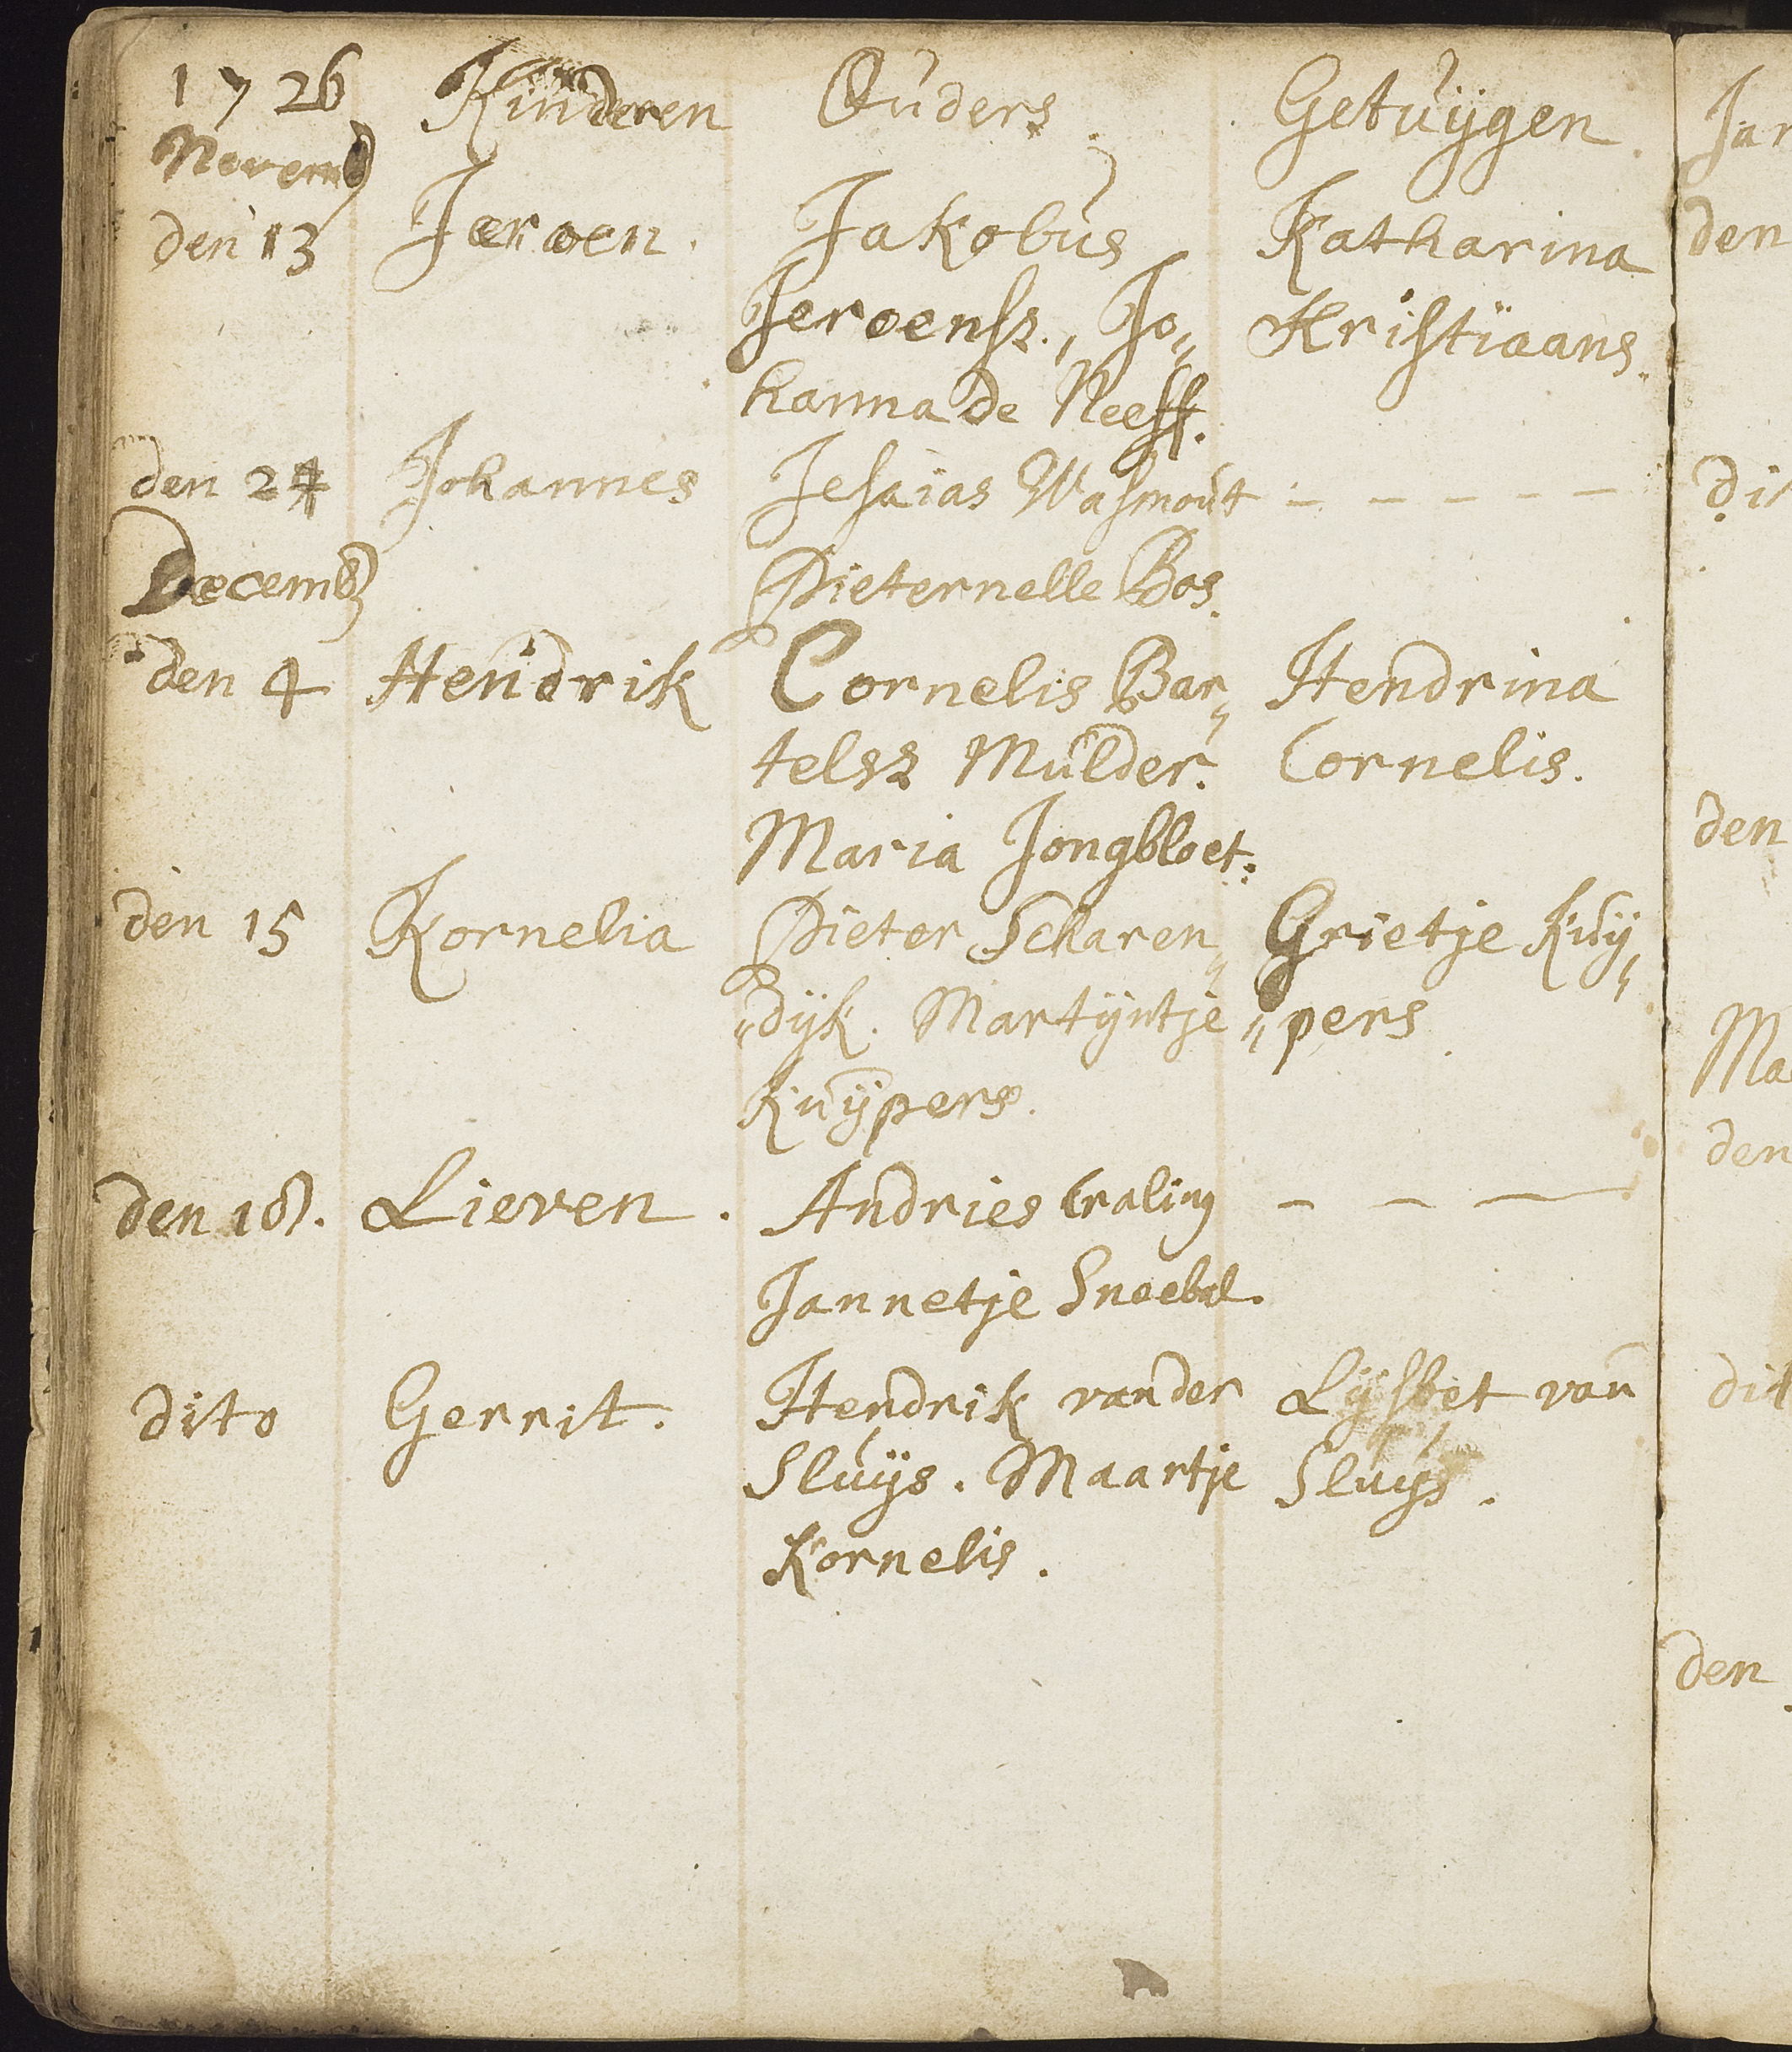 1726 Kinderen Ouders. Getuijgen.
Novemb
den 13 Jeroen. Jakobus Katharina
Jeroensz., Jo„ Kristiaans.
hanna de Neeff.
den 24 Johannes Jesaias Wasmout - - - - -
Decemb
Pieternelle Bos.
den 4 Hendrik Cornelis Bar„ Hendrina
telsz Mulder. Cornelis.
Maria Jongbloet.
den 15 Kornelia Pieter Scharen„ Grietje Kuij„
„dijk. Martijntje „pers.
Kuijpers.
den 18. Lieven. Andries Craling - - -
Jannetje Sneebal.
dito Gerrit. Hendrik vander Lijsbet van
Sluijs. Maartje Sluijs.
Kornelis.
Jan
den
dit
den
Ma
den
dit
den